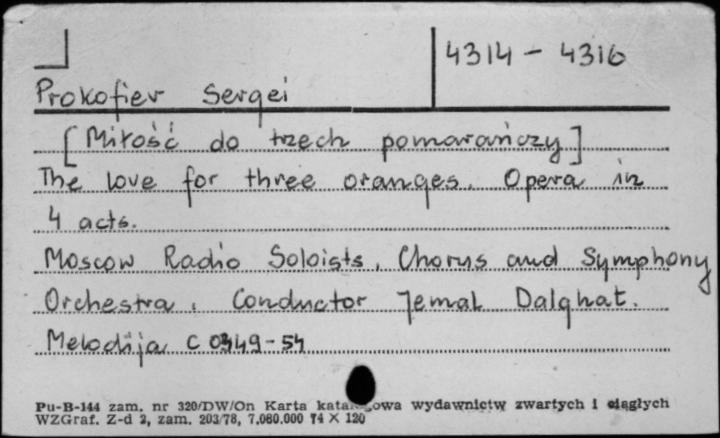 4314 - 4316
Prokofiev Sergei
[Miłość do trzech pomarańczy]
The love for three oranges. Opera in
4 acts.
Moscow Radio Soloists, Chorus and Symphony
Orchestra, Conductor Jemal Dalghat.
Melodija C 0349-54
Pu-B-144 zam. nr 320/DW/On Karta katalogowa wydawnictw zwartych i ciągłych
WZGraf. Z-d 2, zam. 203/78, 7.080.000 74 X 120